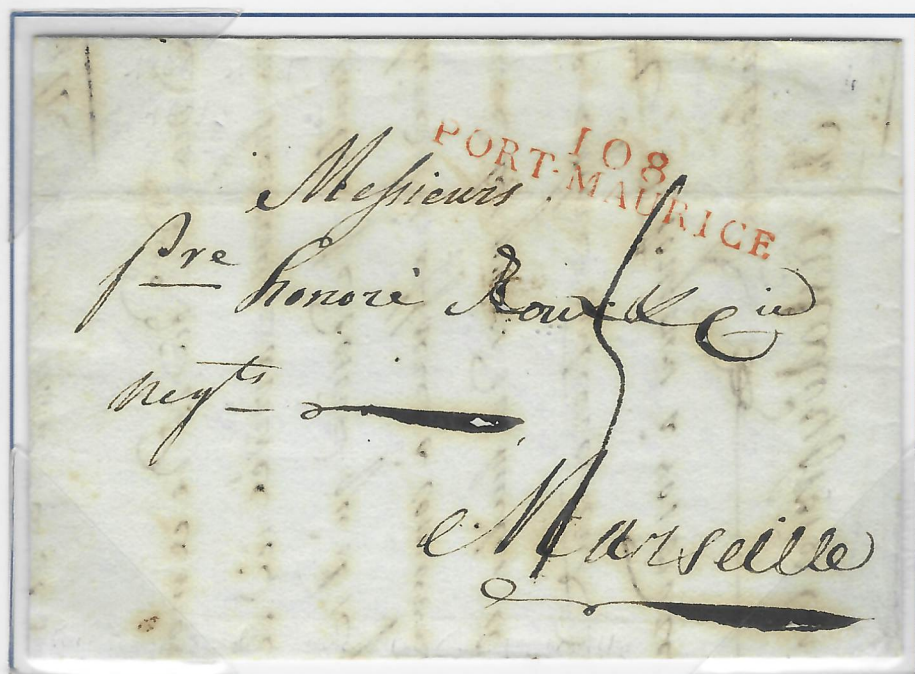 108
PORT-MAURICE
Messieurs
Pre honoré Roux & Cie
Negts
5
Marseille